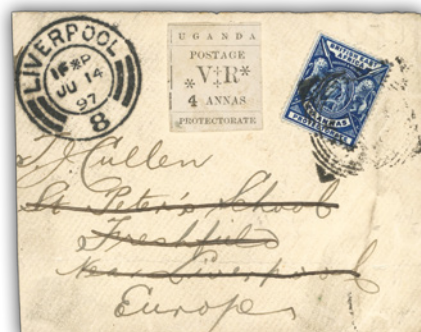 LIVERPOOL
JU 14
97
8
UGANDA
POSTAGE
V R
4 ANNAS
PROTECTORATE
BRITISH EAST
AFRICA
PROTECTORATE
J. Cullen
St Peter's School
Freshfield
Near Liverpool
Europe